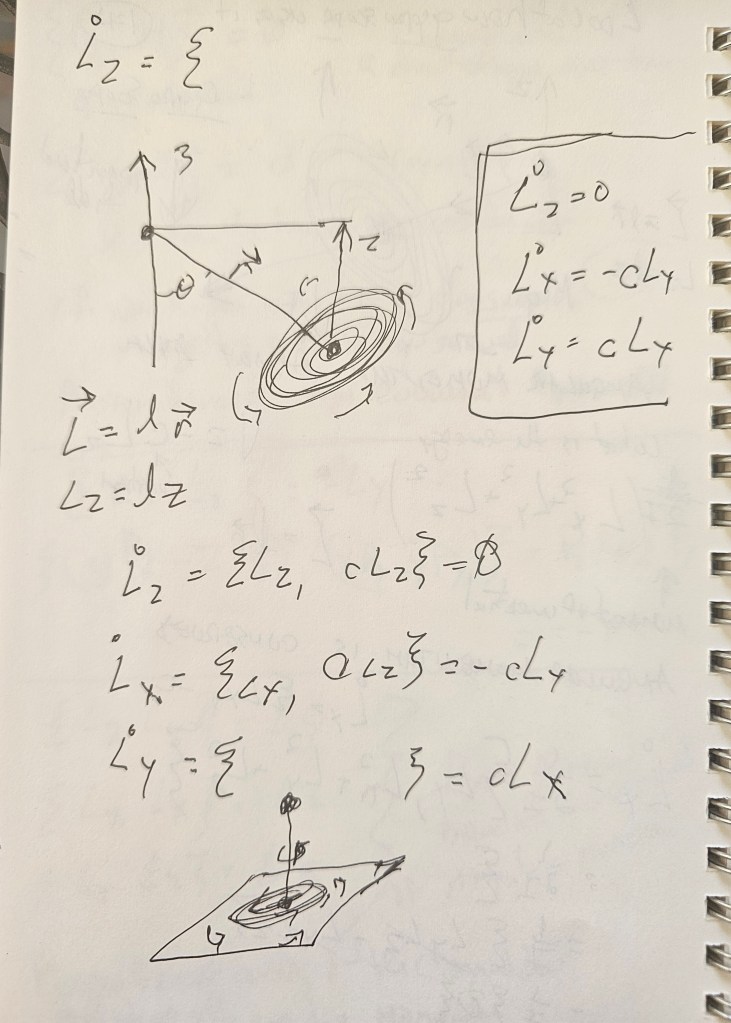 L̇z = {
3
θ
r⃗
z
L̇z = 0
L̇x = -cLy
L̇y = cLy
L⃗ = l r⃗
Lz = lz
L̇z = {Lz, cLz} = 0
L̇x = {Lx, cLz} = - cLy
L̇y = { } = cLx